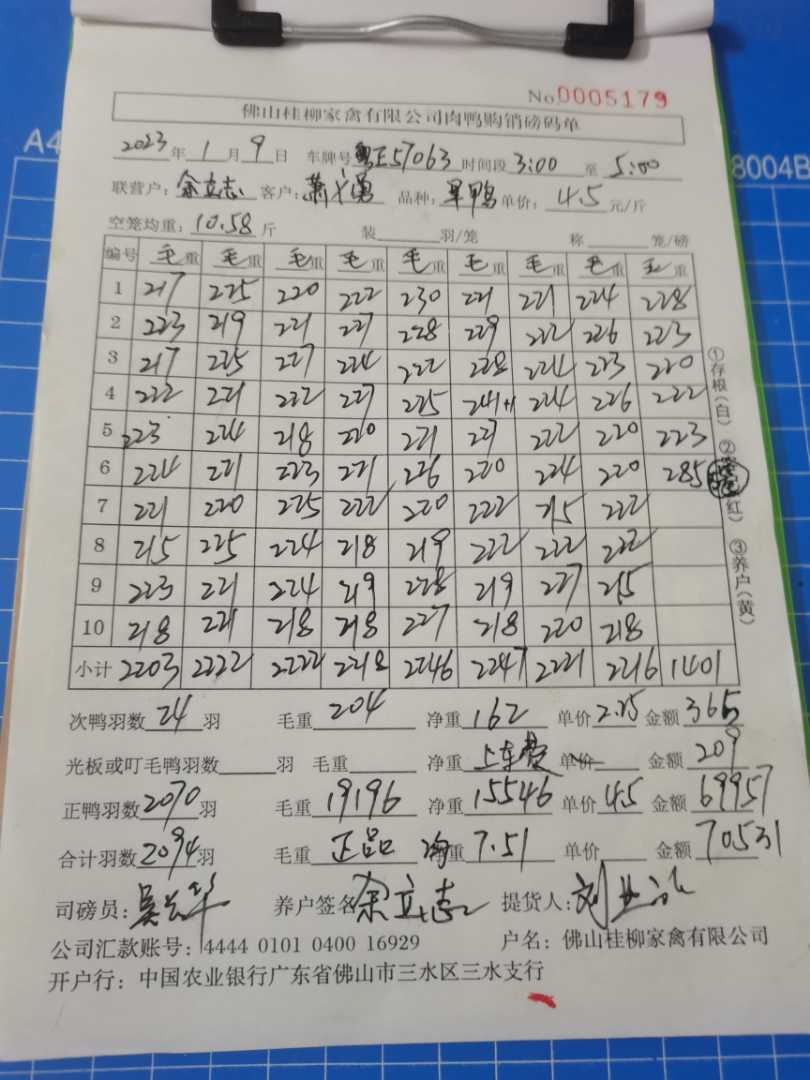 No.0005179
佛山桂柳家禽有限公司肉鸭购销磅码单
2023年1月9日 车牌号粤E57063时间段3:00至5:00
联营户:余立志 客户: 品种:旱鸭 单价:4.5元/斤
空笼均重:10.58斤 装 羽/笼 称 笼/磅
编号 毛重 毛重 毛重 毛重 毛重 毛重 毛重 毛重 毛重
1 217 225 220 222 230 221 221 224 228
2 223 219 221 227 228 229 222 226 223
3 217 225 227 224 222 228 224 223 220
4 222 221 222 227 225 241+1 224 226 222
5 223 224 218 220 221 221 222 220 223
6 224 221 223 221 226 220 224 220 285
7 221 220 225 222 220 222 215 222
8 215 225 224 218 219 222 222 222
9 223 221 224 219 228 219 227 215
10 218 221 218 218 227 218 220 218
小计 2203 2222 2222 2218 2246 2247 2221 2216 1401
次鸭羽数24羽 毛重204 净重162 单价2.25 金额365
光板或叮毛鸭羽数 羽 毛重 净重上车费 单价 金额209
正鸭羽数2070羽 毛重19196 净重15546 单价4.5 金额69957
合计羽数2094羽 毛重正品 均重7.51 单价 金额70531
司磅员: 养户签名余立志 提货人:
公司汇款账号:4444 0101 0400 16929 户名:佛山桂柳家禽有限公司
开户行:中国农业银行广东省佛山市三水区三水支行
①存根(白) ② 红) ③养户(黄)
A4
8004B